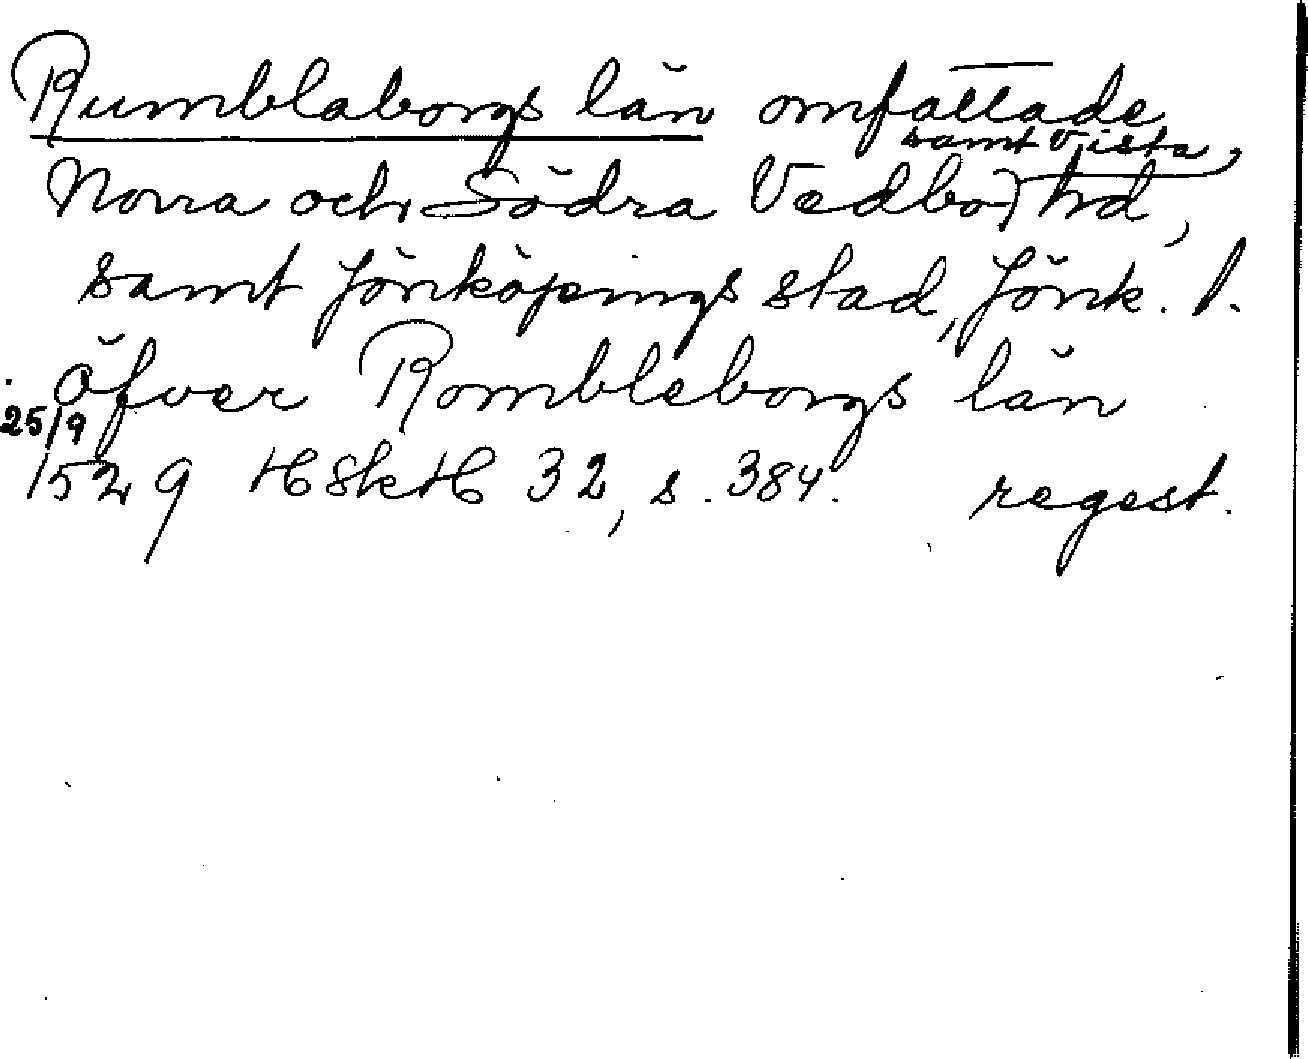 Rumblaborgs län omfattade
samt Vista,
Norra och Södra Vedbo hd,
samt Jönköpings stad, Jönk. l.
öfver Rombleborgs län
25/9
1529 HSkH 32, s. 384. regest.